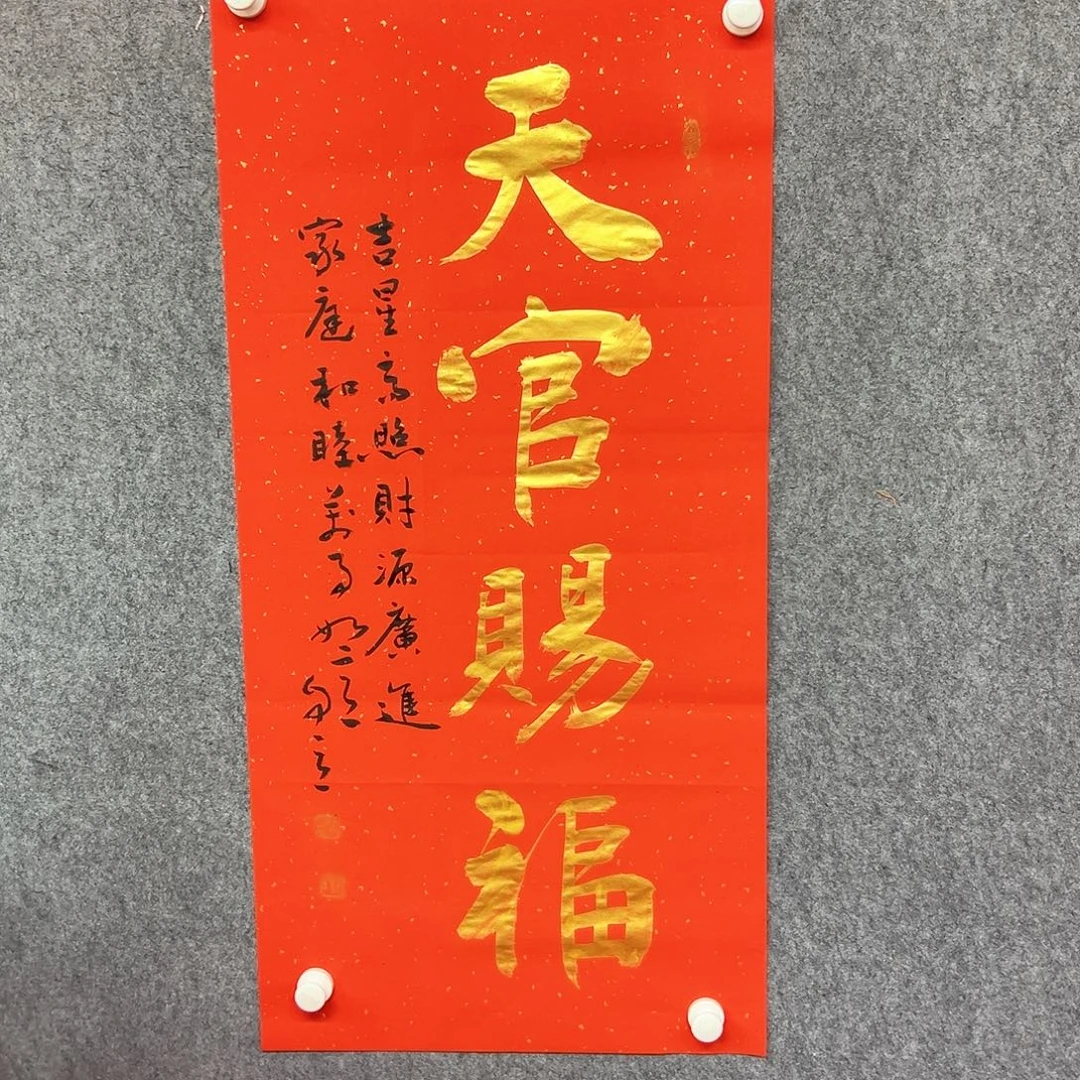 天官賜福
吉星高照財源廣進
家庭和睦萬事如意